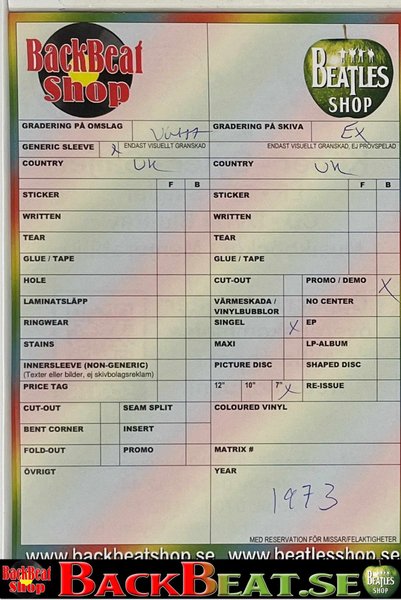 BackBeat
Shop
BEATLES
SHOP
GRADERING PÅ OMSLAG
GRADERING PÅ SKIVA Ex
GENERIC SLEEVE x
ENDAST VISUELLT GRANSKAD
ENDAST VISUELLT GRANSKAD, EJ PROVSPELAD
COUNTRY UK
COUNTRY UK
F B
F B
STICKER
STICKER
WRITTEN
WRITTEN
TEAR
TEAR
GLUE / TAPE
GLUE / TAPE
HOLE
CUT-OUT
PROMO / DEMO x
LAMINATSLÄPP
VÄRMESKADA /
VINYLBUBBLOR
NO CENTER
RINGWEAR
SINGEL x
EP
STAINS
MAXI
LP-ALBUM
INNERSLEEVE (NON-GENERIC)
(Texter eller bilder, ej skivbolagsreklam)
PICTURE DISC
SHAPED DISC
PRICE TAG
12" 10" 7" x
RE-ISSUE
CUT-OUT
SEAM SPLIT
COLOURED VINYL
BENT CORNER
INSERT
FOLD-OUT
PROMO
MATRIX #
ÖVRIGT
YEAR
1973
MED RESERVATION FÖR MISSAR/FELAKTIGHETER
www.backbeatshop.se www.beatlesshop.se
BackBeat
Shop
BACKBEAT.SE
BEATLES
SHOP